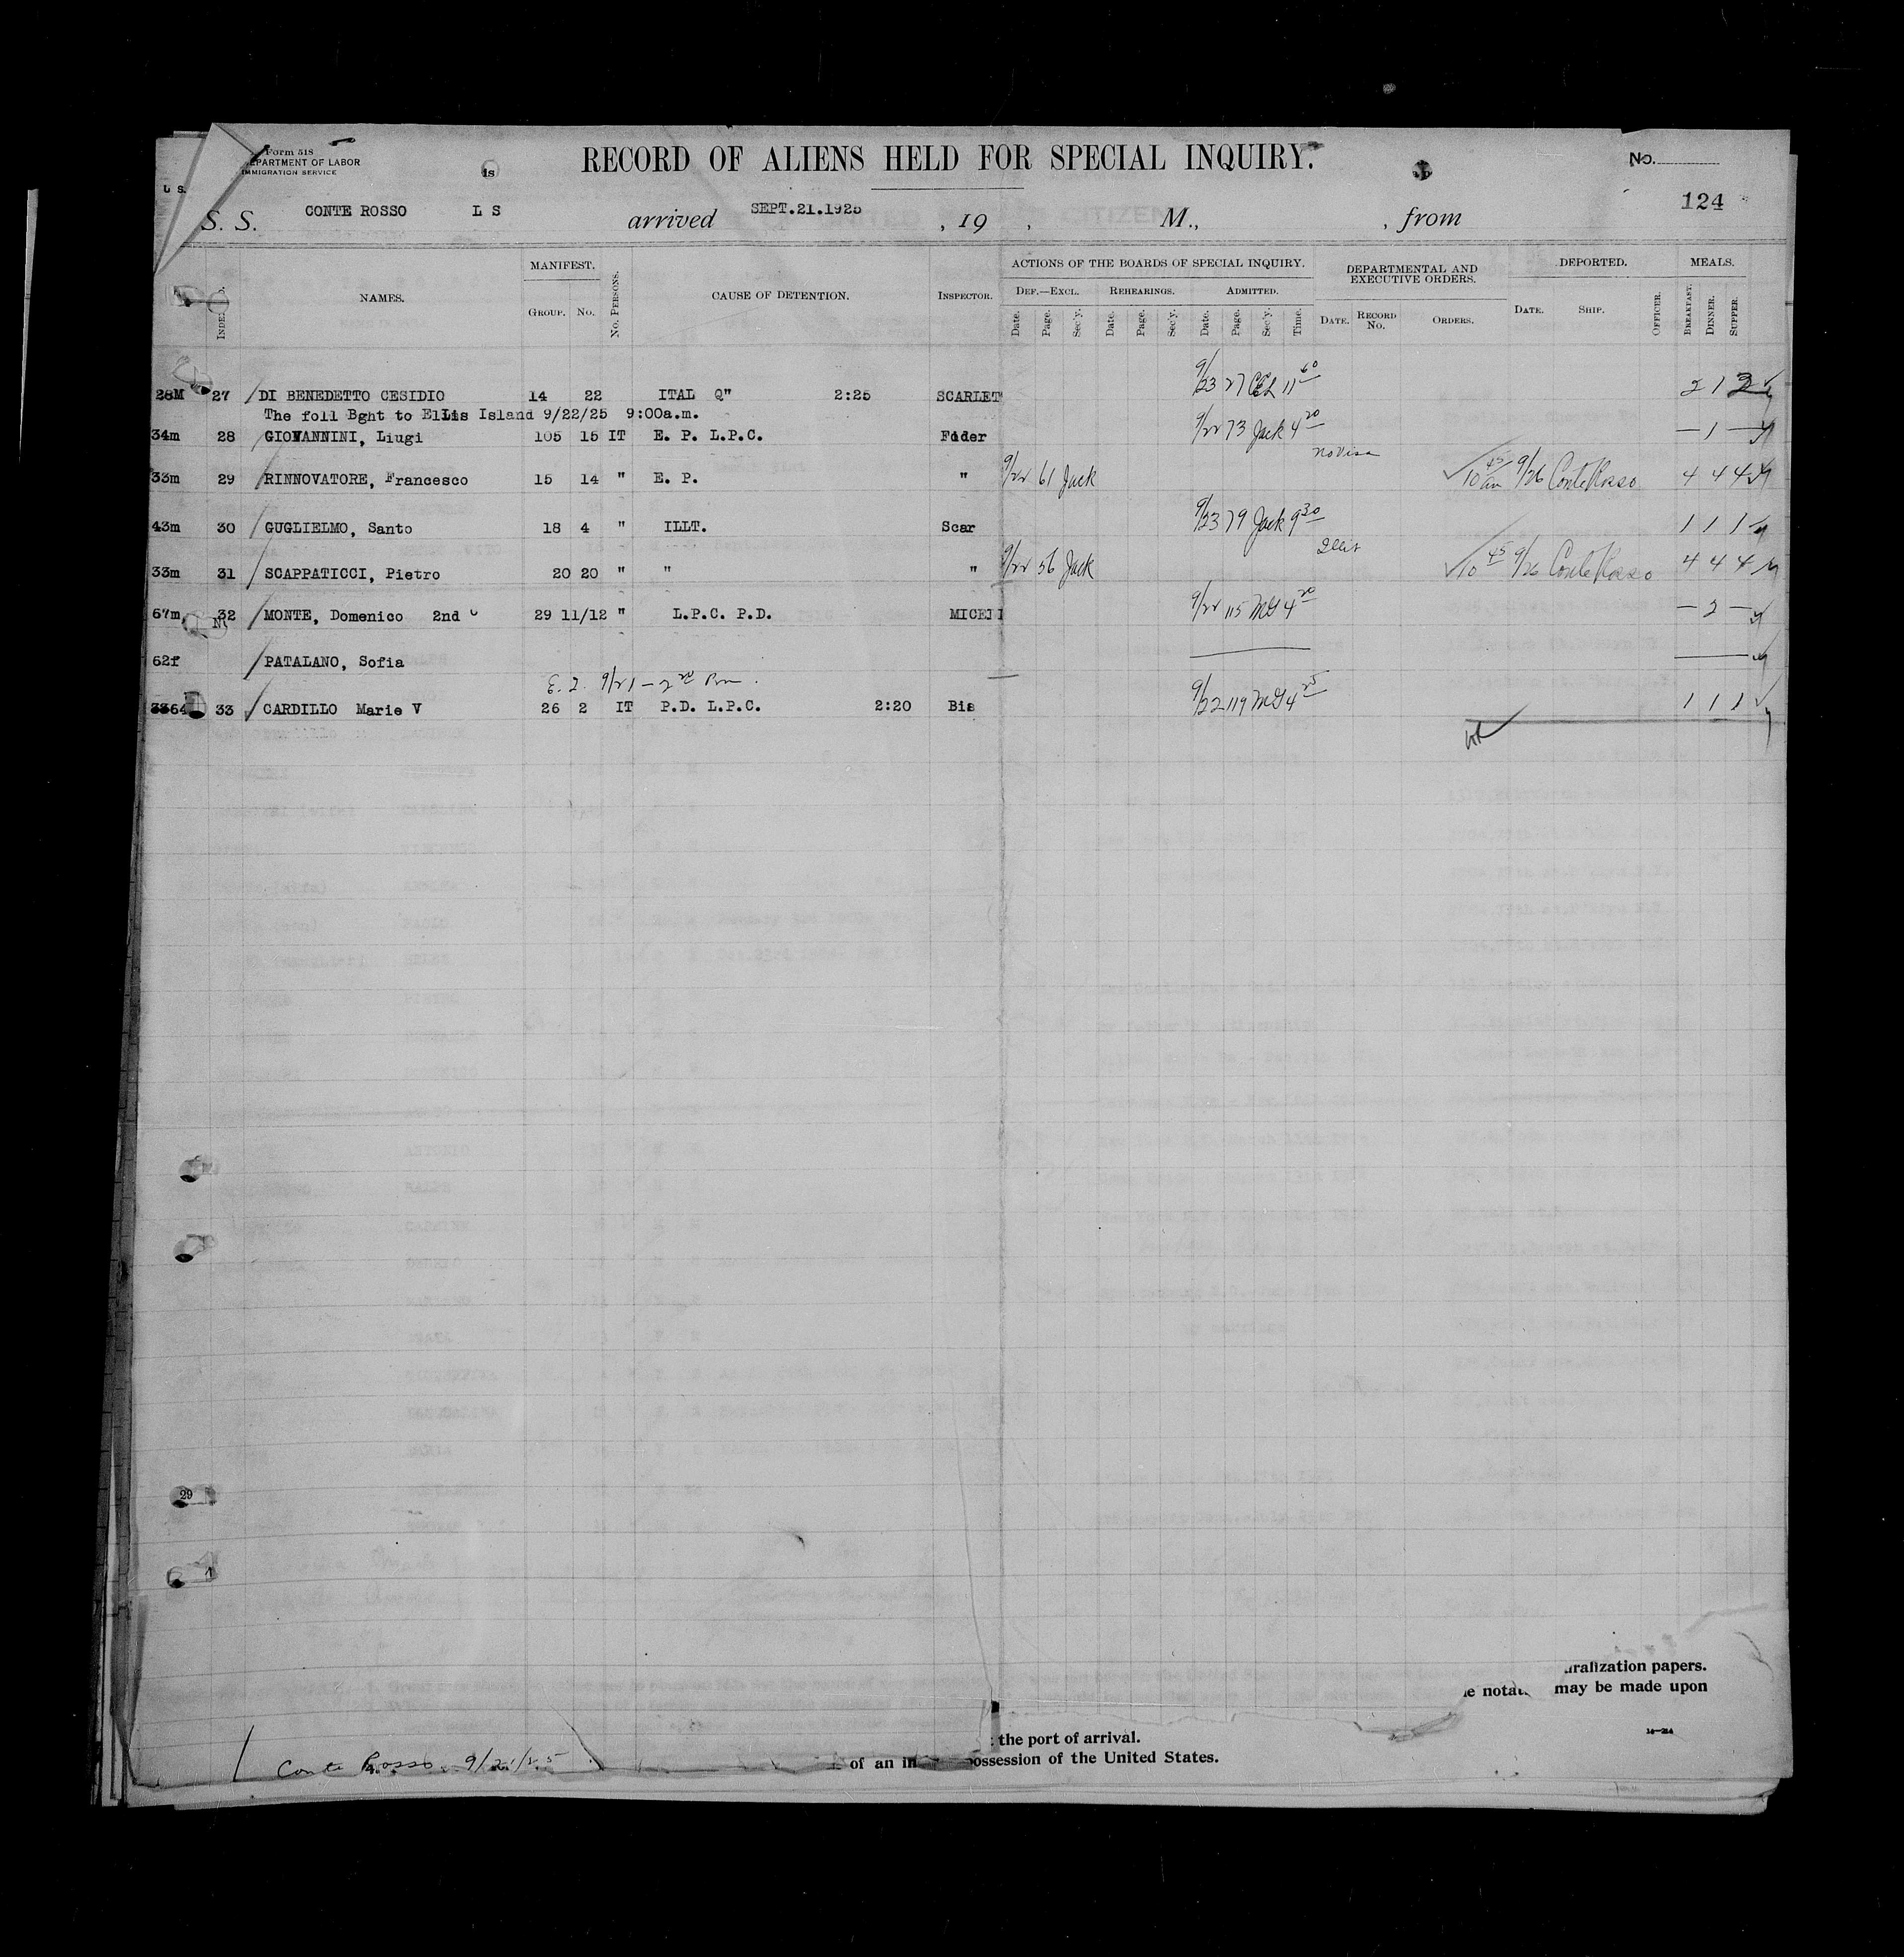 Form 518
DEPARTMENT OF LABOR
IMMIGRATION SERVICE
U S.
is
RECORD OF ALIENS HELD FOR SPECIAL INQUIRY.
No.
124
S. S. CONTE ROSSO L S arrived SEPT.21.1925 , 19 , M., , from
NAMES. MANIFEST. Group. No. No. Persons. CAUSE OF DETENTION. Inspector. ACTIONS OF THE BOARDS OF SPECIAL INQUIRY. DEPARTMENTAL AND EXECUTIVE ORDERS. DEPORTED. MEALS.
Def.—Excl. Rehearings. Admitted.
Date. Page. Sec'y. Date. Page. Sec'y. Date. Page. Sec'y. Time. Date. Record No. Orders. Date. Ship. Officer. Breakfast. Dinner. Supper.
28M 27 DI BENEDETTO CESIDIO 14 22 ITAL Q" 2:25 SCARLET 9/23 27 11 2 1 3
The foll Bght to Ellis Island 9/22/25 9:00a.m.
34m 28 GIOVANNINI, Liugi 105 15 IT E. P. L.P.C. Fider 9/22 73 Jack 4 20 — 1 —
no visa
33m 29 RINNOVATORE, Francesco 15 14 " E. P. " 9/22 61 Jack 10 45 am 9/26 Conte Rosso 4 4 4
43m 30 GUGLIELMO, Santo 18 4 " ILLT. Scar 9/23 79 Jack 9 30 1 1 1
Illit
33m 31 SCAPPATICCI, Pietro 20 20 " " " 9/22 56 Jack 10 45 9/26 Conte Rosso 4 4 4
67m 32 MONTE, Domenico 2nd 29 11/12 " L.P.C. P.D. MICELI 9/22 115 McG 4 20 — 2 —
62f PATALANO, Sofia
E. I. 9/21 — 2nd Rm.
3364 33 CARDILLO Marie V 26 2 IT P.D. L.P.C. 2:20 Bis 9/22 119 McG 4 25 1 1 1
29
uralization papers.
e notat may be made upon
16—214
the port of arrival.
of an in ossession of the United States.
Conte Rosso 9/21/25